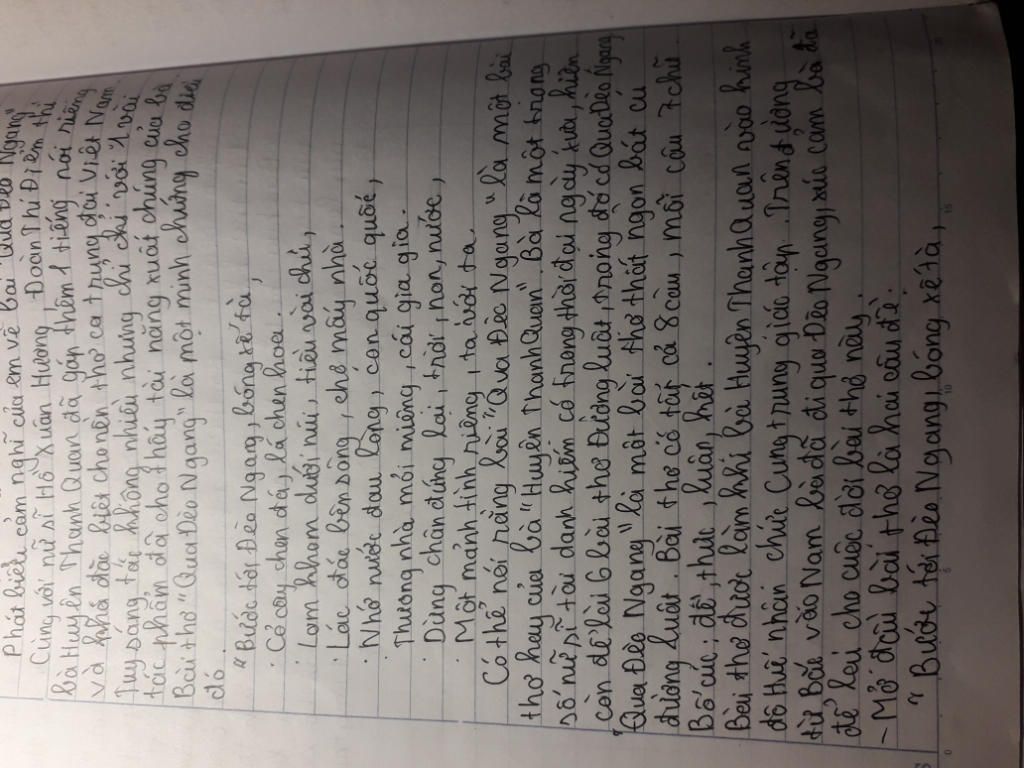 Phát biểu cảm nghĩ của em về bài "Qua Đèo Ngang"
Cùng với nữ sĩ Hồ Xuân Hương, Đoàn Thị Điểm thì
bà Huyện Thanh Quan đã góp thêm 1 tiếng nói riêng
và khá đặc biệt cho nền thơ ca trung đại Việt Nam
Tuy sáng tác không nhiều nhưng chỉ với 1 vài
tác phẩm đã cho thấy tài năng xuất chúng của bà
Bài thơ "Qua Đèo Ngang" là một minh chứng cho điều
đó.
"Bước tới Đèo Ngang, bóng xế tà,
Cỏ cây chen đá, lá chen hoa.
Lom khom dưới núi, tiều vài chú,
Lác đác bên sông, chợ mấy nhà.
Nhớ nước đau lòng, con quốc quốc,
Thương nhà mỏi miệng, cái gia gia.
Dừng chân đứng lại, trời, non, nước,
Một mảnh tình riêng, ta với ta.
Có thể nói rằng bài "Qua Đèo Ngang" là một bài
thơ hay của bà "Huyện Thanh Quan". Bà là một trong
số nữ sĩ tài danh hiếm có trong thời đại ngày xưa, hiện
còn để lại 6 bài thơ Đường luật, trong đó có Qua Đèo Ngang
"Qua Đèo Ngang" là một bài thơ thất ngôn bát cú
đường luật. Bài thơ có tất cả 8 câu, mỗi câu 7 chữ.
Bố cục: đề, thực, luận, kết.
Bài thơ được làm khi bà Huyện Thanh Quan vào kinh
đô Huế nhận chức Cung trung giáo tập. Trên đường
từ Bắc vào Nam bà đã đi qua Đèo Ngang, xúc cảm bà đã
để lại cho cuộc đời bài thơ này.
- Mở đầu bài thơ là hai câu đề:
"Bước tới Đèo Ngang, bóng xế tà,